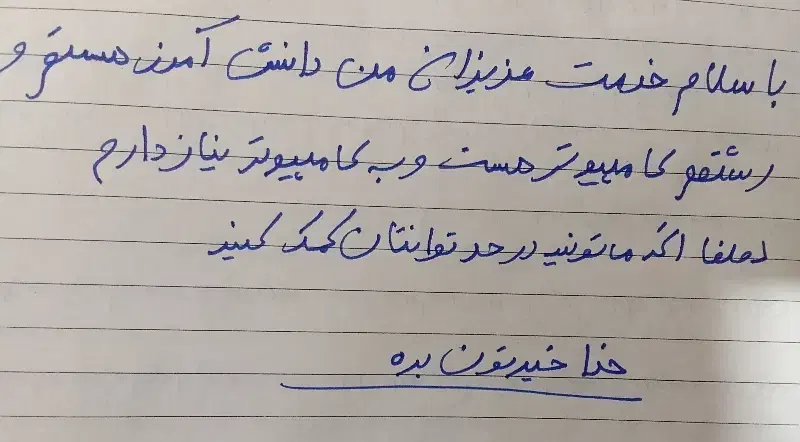 با سلام خدمت عزیزان من دانش آموز هستم و
رشتم کامپیوتر هست و به کامپیوتر نیاز دارم
لطفا اگه ماتونید در حد توانتان کمک کنید
خدا خیرتون بده